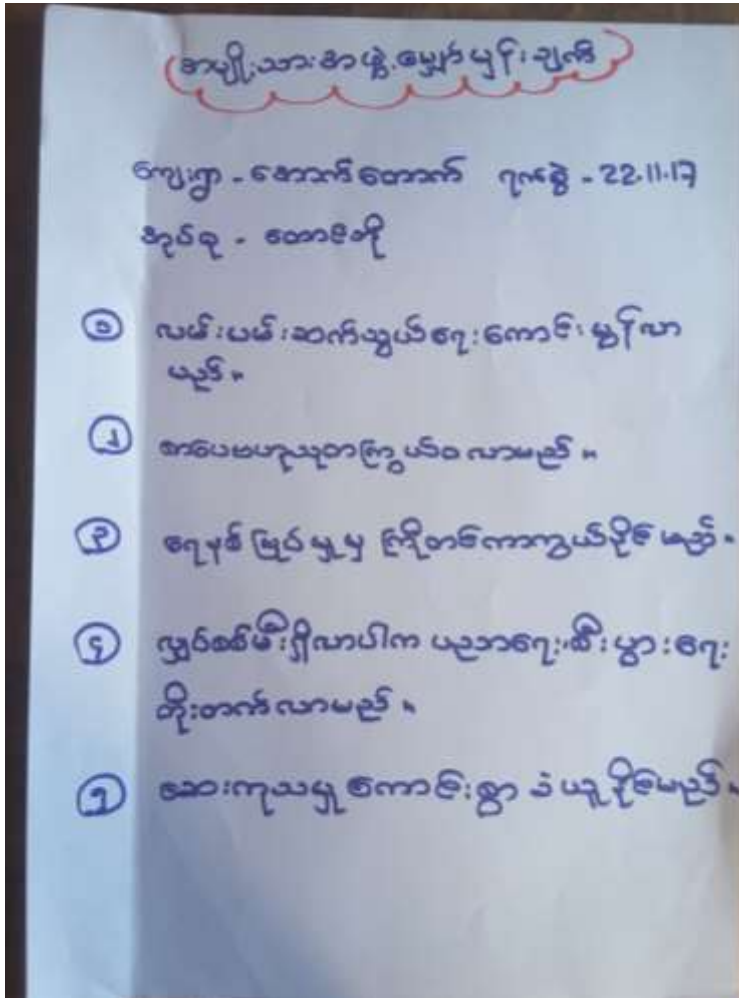 အမျိုးသားအဖွဲ့မျှော်မှန်းချက်
ကျေးရွာ - အောက်တောက် ရက်စွဲ - 22.11.17
အုပ်စု - တောင်ဘို
၁ လမ်းပမ်းဆက်သွယ်ရေးကောင်းမွန်လာ
မည်။
၂ စာပေဗဟုသုတကြွယ်ဝလာမည်။
၃ ရေနစ်မြုပ်မှုမှ ကြိုတင်ကာကွယ်နိုင်မည်။
၄ လျှပ်စစ်မီးရှိလာပါက ပညာရေး၊စီးပွားရေး
တိုးတက်လာမည်။
၅ ဆေးကုသမှုကောင်းစွာ ခံယူနိုင်မည်။